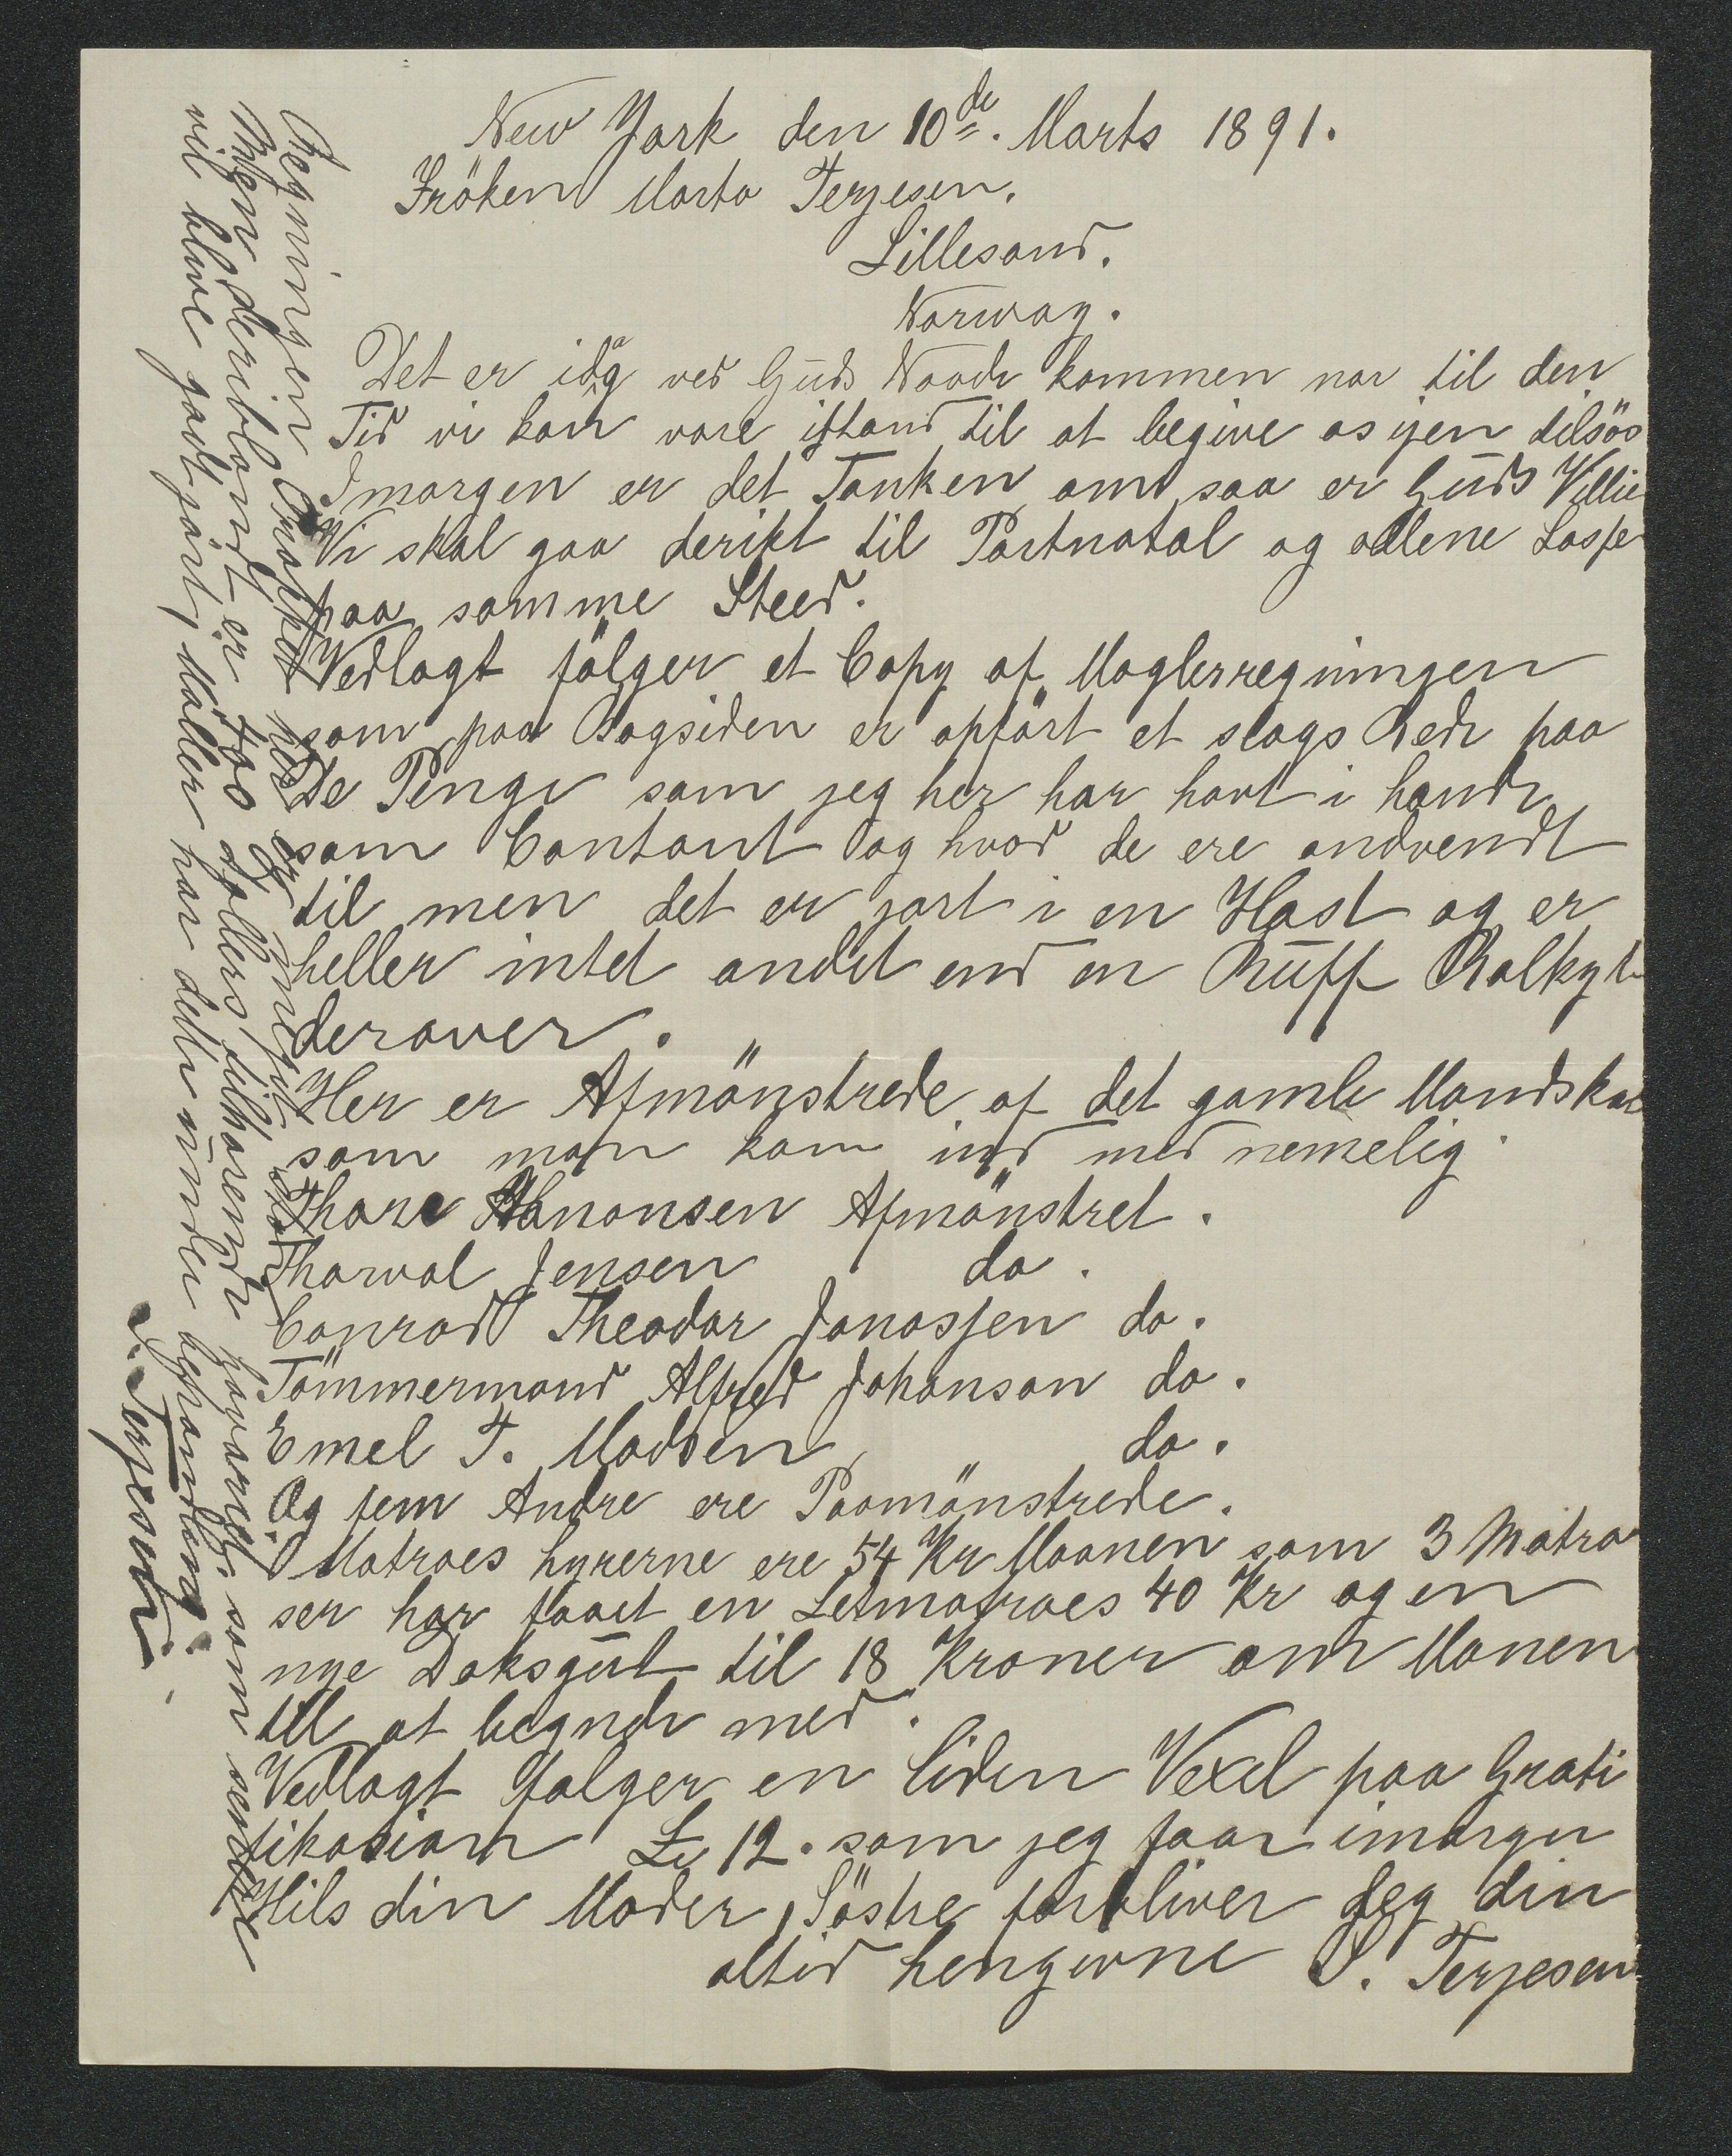 New York den 10de. Marts 1891.
Fröken Marta Terjesen.
Lillesand.
Norway.
Det er idag ved Guds Naade kommen nar til den
Tid vi kan vare istand til at begive os ijen tilsös
Imorgen er det Tanken om saa er Guds Villie
Vi skal gaa derikt til Portnatal og allene Losse
paa samme Steed.
Vedlagt fölger et Copy af Maglerregningen
som paa Bagsiden er opfört et slags Rede paa
De Penge som jeg her har havt i hande
som Contant og hvad de ere andvendt
til men det er jort i en Hast og er
heller intet andet end en Ruff Kalkyle
derover.
Her er Afmönstrede af det gamle Mandskab
som man kom ind med nemelig
Thore Anonsen Afmönstret.
Thorval Jensen do.
Conrad Theodor Jonassen do.
Tömmermand Alfred Johanson do.
Emel T. Madsen do.
Og fem Andre ere Paamönstrede.
Matroes hyrerne ere 54 Kr Maanen som 3 Matro
ser har faaet en Letmatroes 40 Kr og en
nye Doksgut til 18 Kroner om Manen
till at begynde med.
Vedlagt fölger en liden Vexel paa Grati
fikasion £ 12. som jeg faar imorgen
Hils din Moder, Söstre forbliver Jeg din
altid hengivne S. Terjesen
Regningen
Ingen deriblandt er 400 dollers tilhorende havariet som
vil blive godtjort, Möller har dette under behandling.
S. Terjesen.